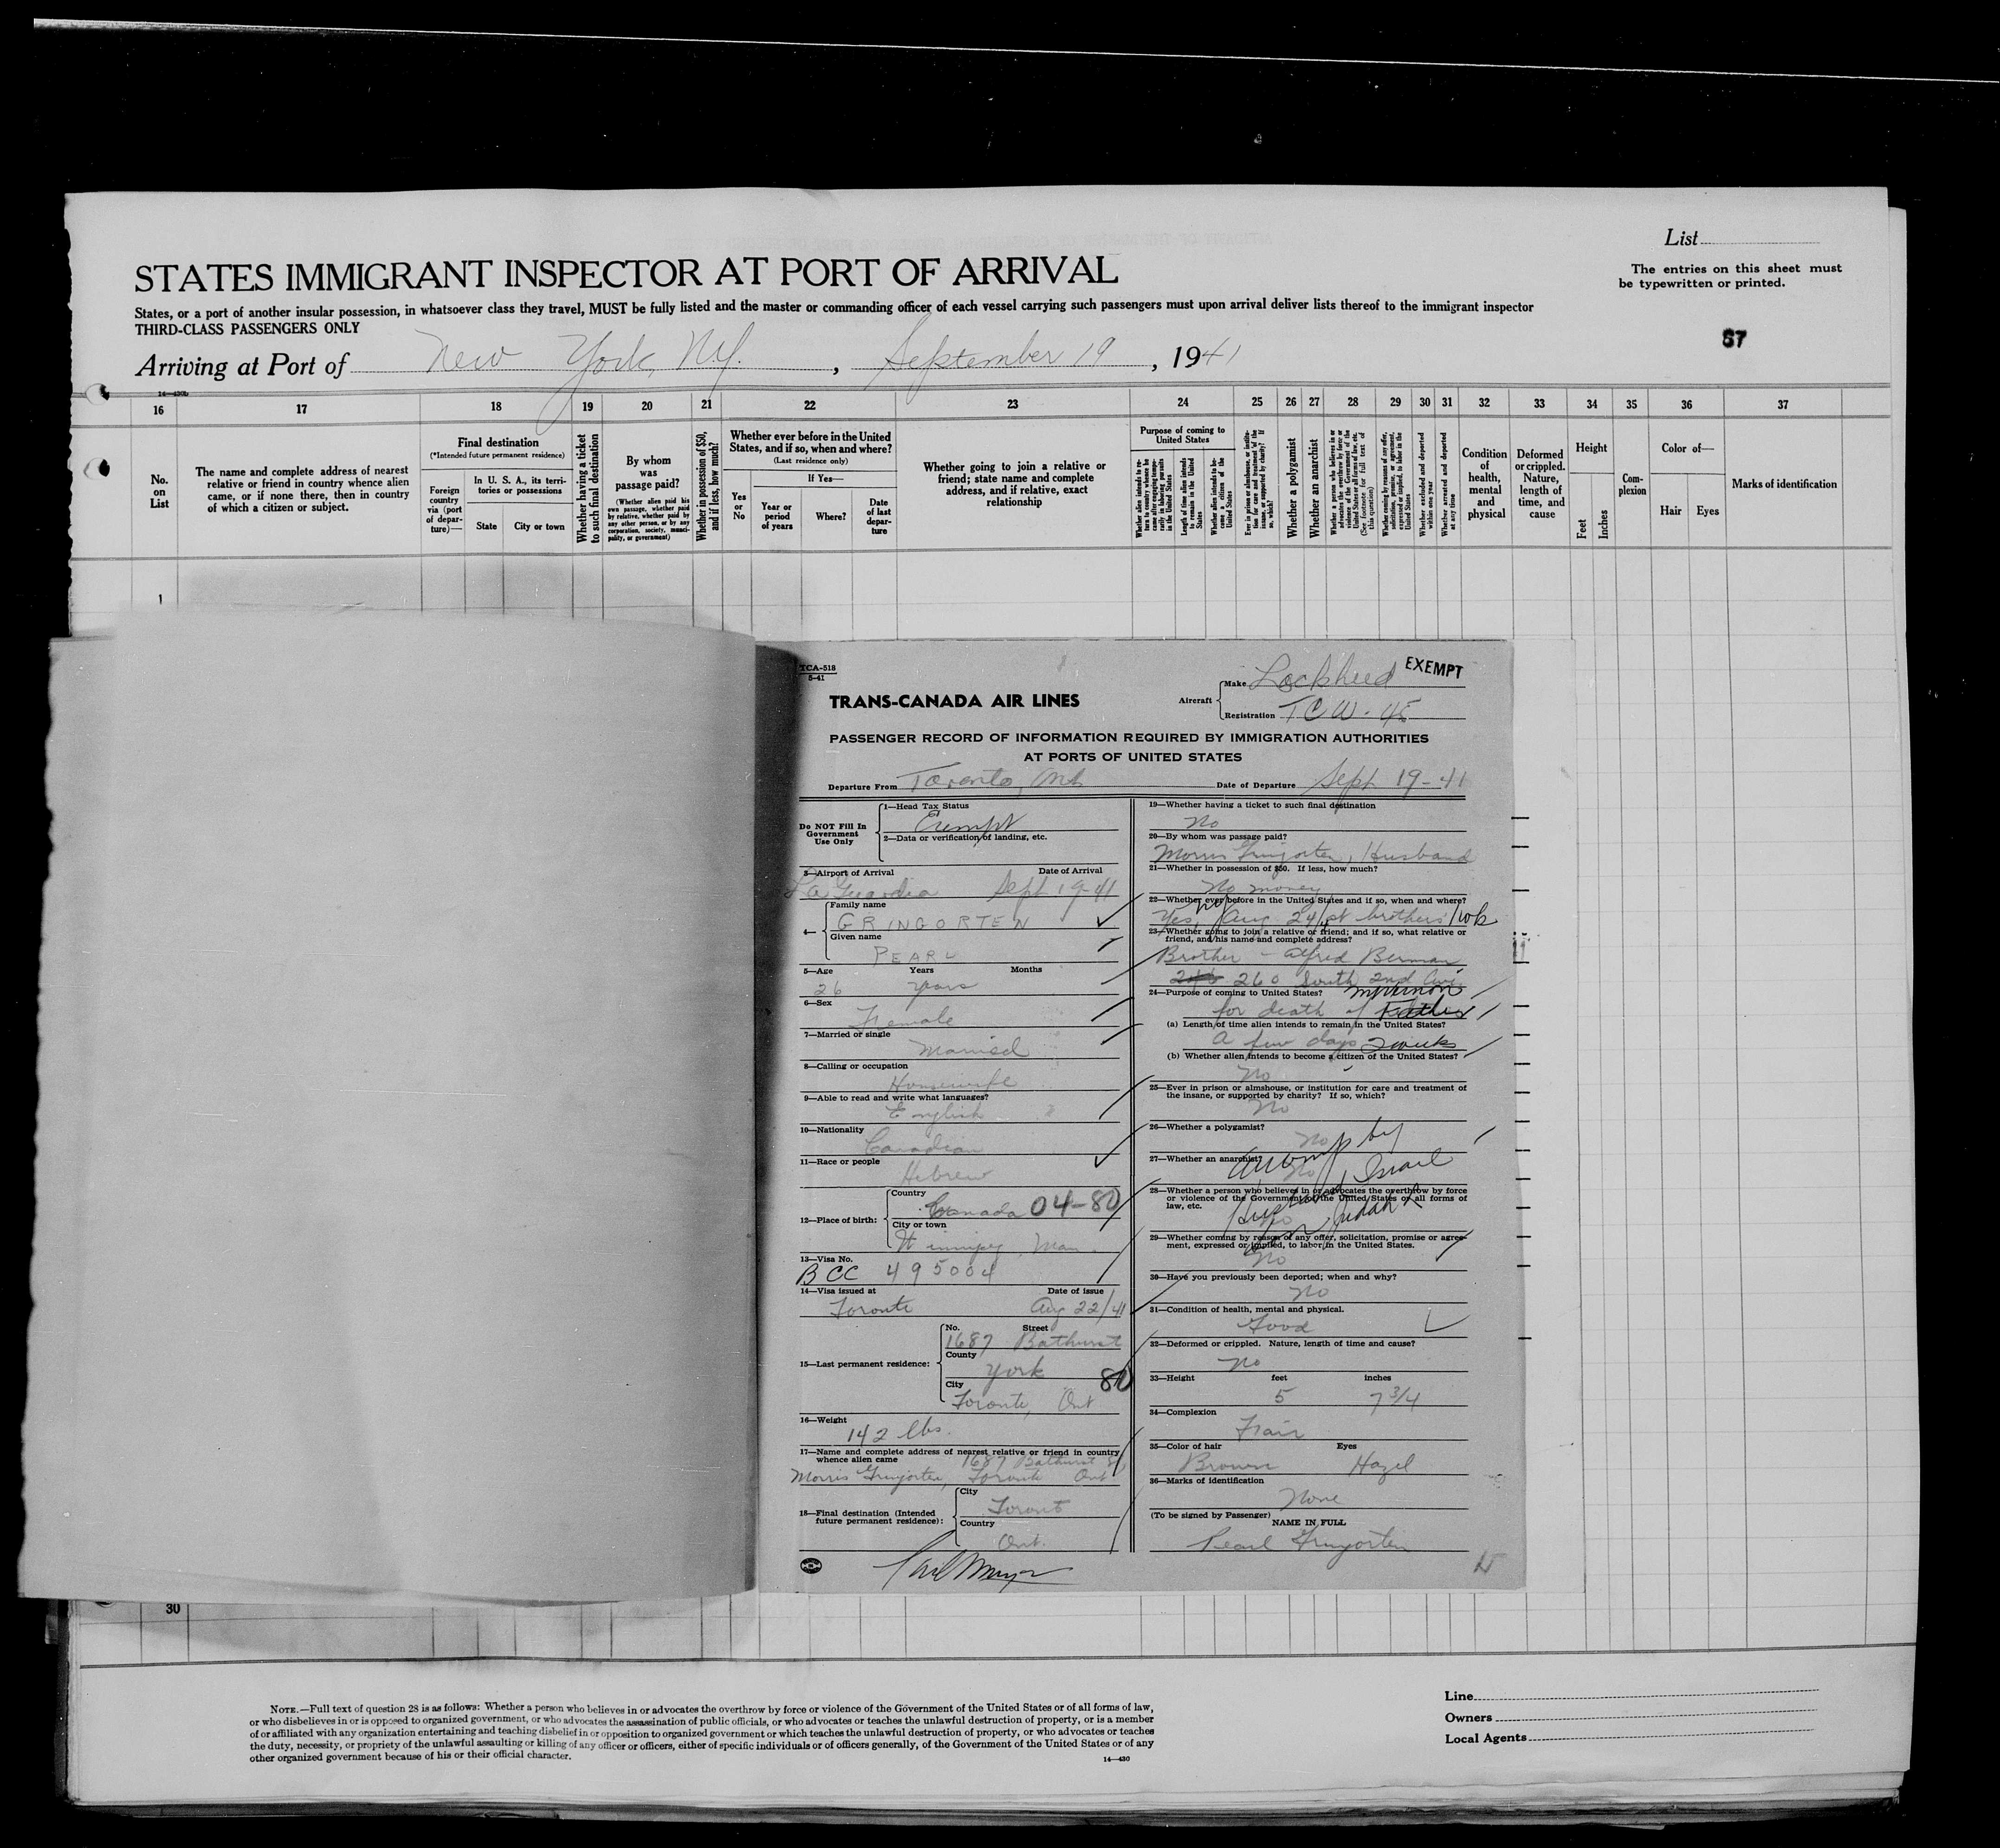 List
STATES IMMIGRANT INSPECTOR AT PORT OF ARRIVAL
The entries on this sheet must
be typewritten or printed.
States, or a port of another insular possession, in whatsoever class they travel, MUST be fully listed and the master or commanding officer of each vessel carrying such passengers must upon arrival deliver lists thereof to the immigrant inspector
THIRD-CLASS PASSENGERS ONLY
67
Arriving at Port of New York, N.Y. , September 19 , 1941
14—430b
16 17 18 19 20 21 22 23 24 25 26 27 28 29 30 31 32 33 34 35 36 37
No. on List
The name and complete address of nearest
relative or friend in country whence alien
came, or if none there, then in country
of which a citizen or subject.
Final destination
(*Intended future permanent residence)
Foreign country via (port of departure)—
In U. S. A., its terri-
tories or possessions
State City or town
Whether having a ticket to such final destination
By whom
was
passage paid?
(Whether alien paid his
own passage, whether paid
by relative, whether paid by
any other person, or by any
corporation, society, munici-
pality, or government)
Whether in possession of $50, and if less, how much?
Whether ever before in the United
States, and if so, when and where?
(Last residence only)
Yes or No
If Yes—
Year or period of years
Where?
Date of last depar-ture
Whether going to join a relative or
friend; state name and complete
address, and if relative, exact
relationship
Purpose of coming to
United States
Whether a polygamist
Whether an anarchist
Whether excluded and deported within one year
Whether arrested and deported at any time
Condition
of
health,
mental
and
physical
Deformed
or crippled.
Nature,
length of
time, and
cause
Height
Feet Inches
Com-
plexion
Color of—
Hair Eyes
Marks of identification
1
TCA-518
5-41
TRANS-CANADA AIR LINES
Aircraft
Make Lockheed
EXEMPT
Registration TCW-45
PASSENGER RECORD OF INFORMATION REQUIRED BY IMMIGRATION AUTHORITIES
AT PORTS OF UNITED STATES
Departure From Toronto, Ont Date of Departure Sept 19-41
Do NOT Fill In
Government
Use Only
1—Head Tax Status
Exempt
2—Data or verification of landing, etc.
3—Airport of Arrival Date of Arrival
La Guardia Sept 19-41
4— Family name
GRINGORTEN
Given name
PEARL
5—Age Years Months
26 years
6—Sex
Female
7—Married or single
Married
8—Calling or occupation
Housewife
9—Able to read and write what languages?
English
10—Nationality
Canadian
11—Race or people
Hebrew
12—Place of birth:
Country
Canada 04-80
City or town
Winnipeg, Man.
13—Visa No.
BCC 495004
14—Visa issued at Date of issue
Toronto Aug 22/41
15—Last permanent residence:
No. Street
1687 Bathurst
County
York
80
City
Toronto, Ont
16—Weight
142 lbs.
17—Name and complete address of nearest relative or friend in country
whence alien came 1687 Bathurst St,
Morris Gringorten, Toronto Ont
18—Final destination (Intended
future permanent residence):
City
Toront
Country
Ont.
19—Whether having a ticket to such final destination
No
20—By whom was passage paid?
Morris Gringorten, Husband
21—Whether in possession of $50. If less, how much?
No money
22—Whether ever before in the United States and if so, when and where?
Yes, NY Aug 24/41 at brothers 1wk
23—Whether going to join a relative or friend; and if so, what relative or
friend, and his name and complete address?
Brother - Alfred Berman
260 South 2nd Ave.
24—Purpose of coming to United States?
for death of Father
(a) Length of time alien intends to remain in the United States?
A few days 2 weeks
(b) Whether alien intends to become a citizen of the United States?
No
25—Ever in prison or almshouse, or institution for care and treatment of
the insane, or supported by charity? If so, which?
No
26—Whether a polygamist?
No
27—Whether an anarchist?
No
accomp by
28—Whether a person who believes in or advocates the overthrow by force
or violence of the Government of the United States or all forms of
law, etc.
No
29—Whether coming by reason of any offer, solicitation, promise or agree-
ment, expressed or implied, to labor in the United States.
No
30—Have you previously been deported; when and why?
No
31—Condition of health, mental and physical.
Good
32—Deformed or crippled. Nature, length of time and cause?
No
33—Height feet inches
5 7 3/4
34—Complexion
Fair
35—Color of hair Eyes
Brown Hazel
36—Marks of identification
None
(To be signed by Passenger)
NAME IN FULL
Pearl Gringorten
30
NOTE.—Full text of question 28 is as follows: Whether a person who believes in or advocates the overthrow by force or violence of the Government of the United States or of all forms of law,
or who disbelieves in or is opposed to organized government, or who advocates the assassination of public officials, or who advocates or teaches the unlawful destruction of property, or is a member
of or affiliated with any organization entertaining and teaching disbelief in or opposition to organized government or which teaches the unlawful destruction of property, or who advocates or teaches
the duty, necessity, or propriety of the unlawful assaulting or killing of any officer or officers, either of specific individuals or of officers generally, of the Government of the United States or of any
other organized government because of his or their official character.
14—430
Line
Owners
Local Agents